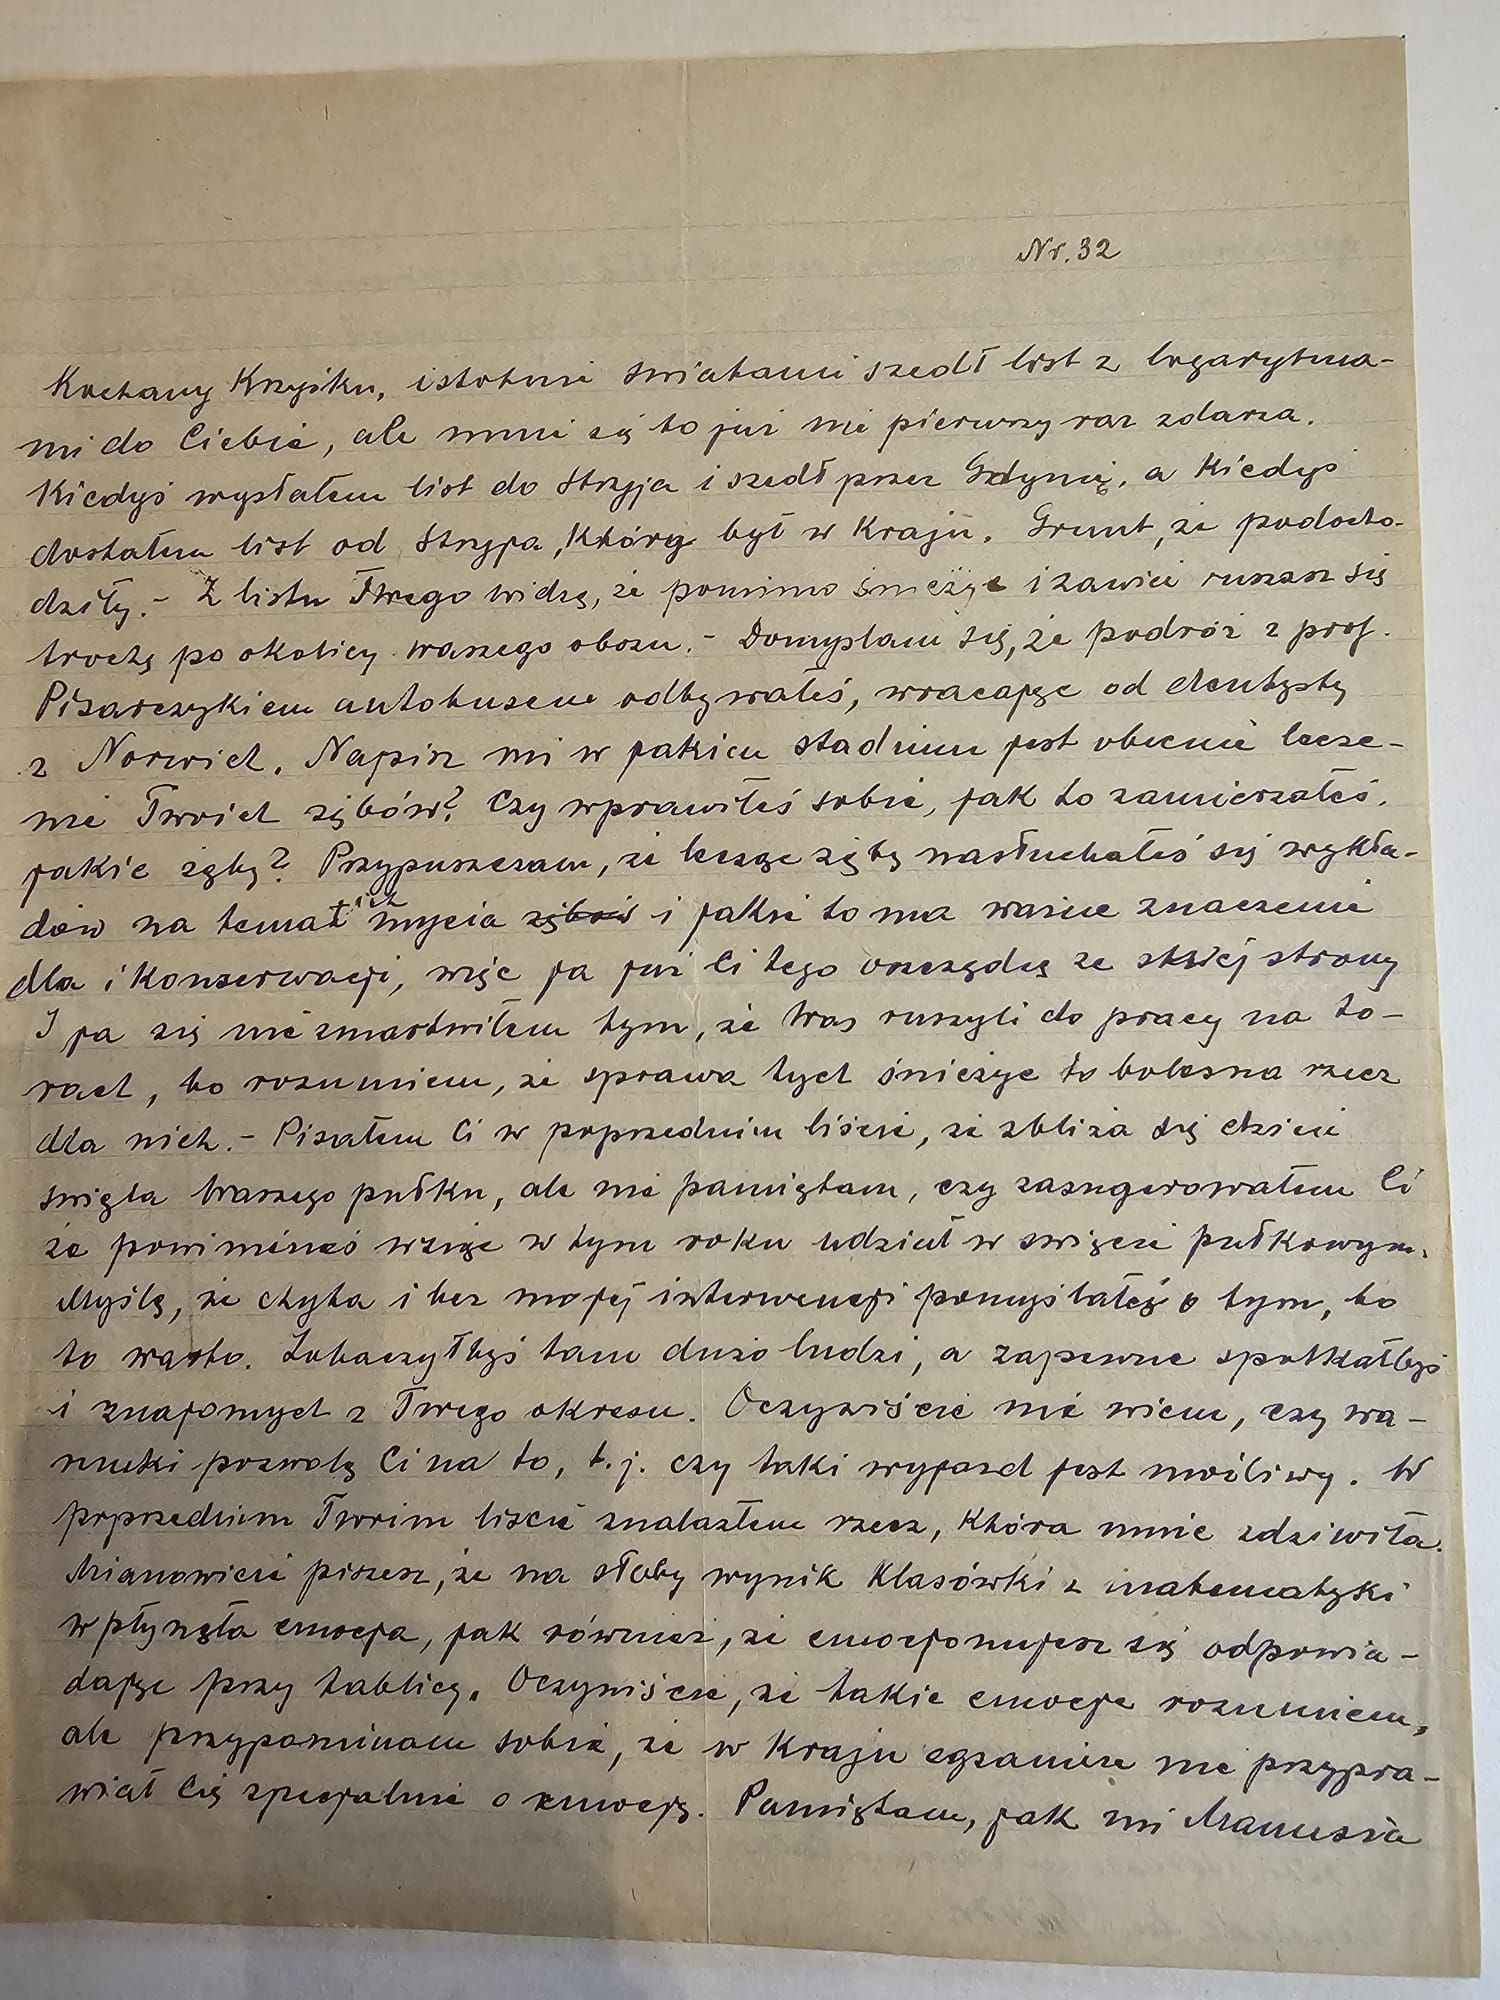 Nr. 32
Kochany Krzyśku, istotnie światami szedł list z logarytma-
mi do Ciebie, ale mnie się to już nie pierwszy raz zdarza.
Kiedyś wysłałem list do Stryja i szedł przez Gdynię, a kiedyś
dostałem list od Stryja, który był w Kraju. Grunt, że podocho-
dziły.- Z listu Twego widzę, że pomimo śnieżyc i zawiei ruszasz się
trochę po okolicy waszego obozu.- Domyślam się, że podróż z prof.
Pisarczykiem autobusem odbywałeś, wracając od dentysty
z Norwich. Napisz mi w jakiem stadium jest obecnie lecze-
nie Twoich zębów? Czy wprawiłeś sobie, jak to zamierzałeś,
jakie zęby? Przypuszczam, że lecząc zęby nasłuchałeś się wykła-
dów na temat ich mycia zębów i jakie to ma ważne znaczenie
dla i konserwacji, więc ja już Ci tego oszczędzę ze swej strony
I ja się nie zmartwiłem tym, że Was ruszyli do pracy na to-
rach, bo rozumiem, że sprawa tych śnieżyc to bolesna rzecz
dla nich.- Pisałem Ci w poprzednim liście, że zbliża się dzień
święta Waszego pułku, ale nie pamiętam, czy zasugerowałem Ci
że powinieneś wziąć w tym roku udział w święcie pułkowym.
Myślę, że chyba i bez mojej interwencji pomyślałeś o tym, bo
to warto. Zobaczyłbyś tam dużo ludzi, a zapewne spotkałbyś
i znajomych z Twego okresu. Oczywiście nie wiem, czy wa-
runki pozwolą Ci na to, t.j. czy taki wyjazd jest możliwy. W
poprzednim Twoim liście znalazłem rzecz, która mnie zdziwiła.
Mianowicie piszesz, że na słaby wynik klasówki z matematyki
wpłynęła emocja, jak również, że emocjonujesz się odpowia-
dając przy tablicy. Oczywiście, że takie emocje rozumiem,
ale przypominam sobie, że w Kraju egzamin nie przypra-
wiał Cię specjalnie o emocję. Pamiętam, jak mi Mamusia